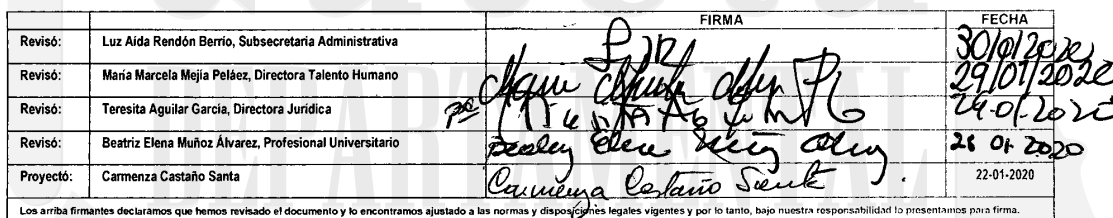 FIRMA FECHA
Revisó: Luz Aída Rendón Berrío, Subsecretaria Administrativa 30/01/2020
Revisó: María Marcela Mejía Peláez, Directora Talento Humano 29/01/2020
Revisó: Teresita Aguilar García, Directora Jurídica 24-01-2020
Revisó: Beatriz Elena Muñoz Álvarez, Profesional Universitario 28 01 2020
Proyectó: Carmenza Castaño Santa Carmenza Castaño Santa. 22-01-2020
Los arriba firmantes declaramos que hemos revisado el documento y lo encontramos ajustado a las normas y disposiciones legales vigentes y por lo tanto, bajo nuestra responsabilidad lo presentamos para firma.